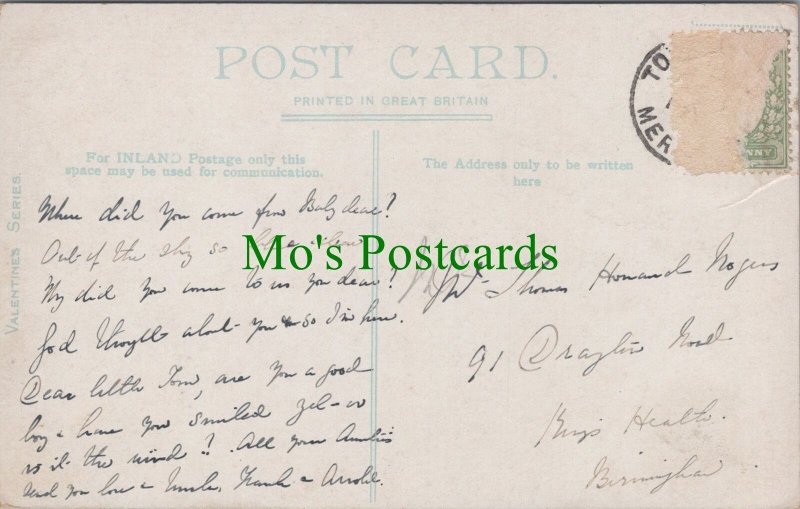 POST CARD.
PRINTED IN GREAT BRITAIN
For INLAND Postage only this
space may be used for communication.
The Address only to be written
here
VALENTINES SERIES.
TO
MER
NNY
Where did you come from Baby dear?
Out of the sky so
My did you come to us you dear?
God thought about you & so I'm here.
Dear little Tom, are you a good
boy & have you smiled yet - or
is it the wind? All your Aunties
send you love & Uncles, Frank & Arnold.
Mo's Postcards
Thomas Howard Rogers
91 Drayton Road
Kings Heath.
Birmingham